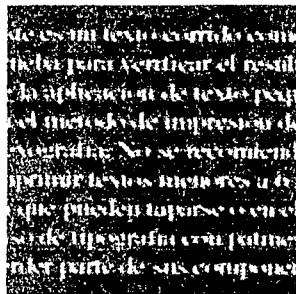 de es un texto corrido como
ueba para verificar el result
e la aplicación de texto peq
el método de impresión de
exografía. No se recomiend
mprimir textos menores a 6
que pueden taparse o en el
so de tipografía con patines
rder parte de sus componen